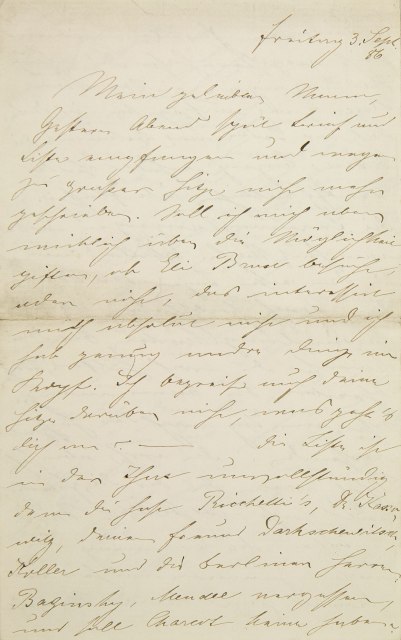 Freitag 3. Sept.
86
Mein geliebter Mann,
Gestern Abend spät Brief und
Liste empfangen und wegen
zu grosser Hitze nicht mehr
geschrieben. Soll ich mich
über die Möglichkeit
ob Eli Brust besuche,
oder nicht, das interessirt
mich absolut nicht und ich
hab genug andre Dinge im
Kopf. Ich begreif auch deine
Hitze darüber nicht, was geht's
dich an? — die Liste ist
in der That unvollständig
denn du hast Ricchetti's, Dr.
deinen Freund Darkschewitsch,
Koller und die berliner Herren
Baginsky, Mendel vergessen,
und soll Charcot keine haben